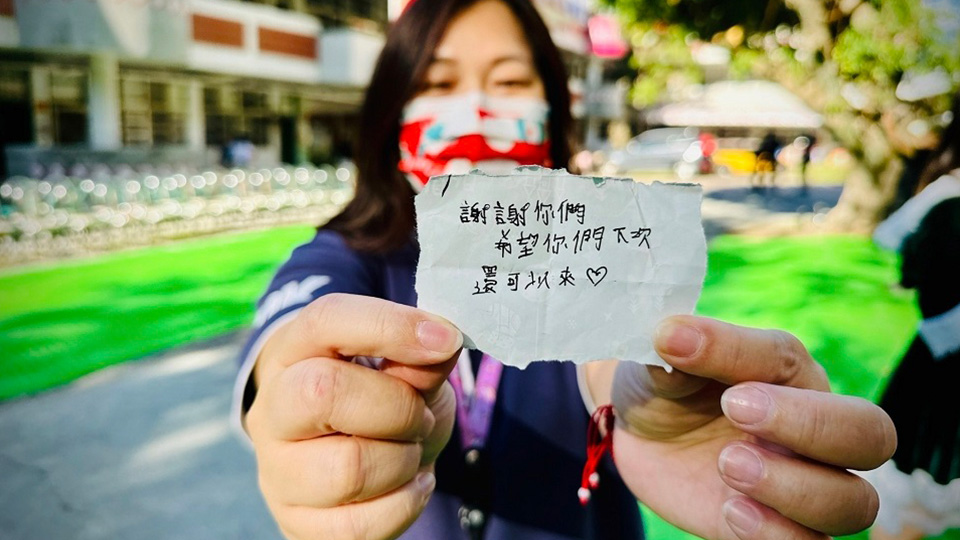 謝謝你們
希望你們下次
還可以來♡